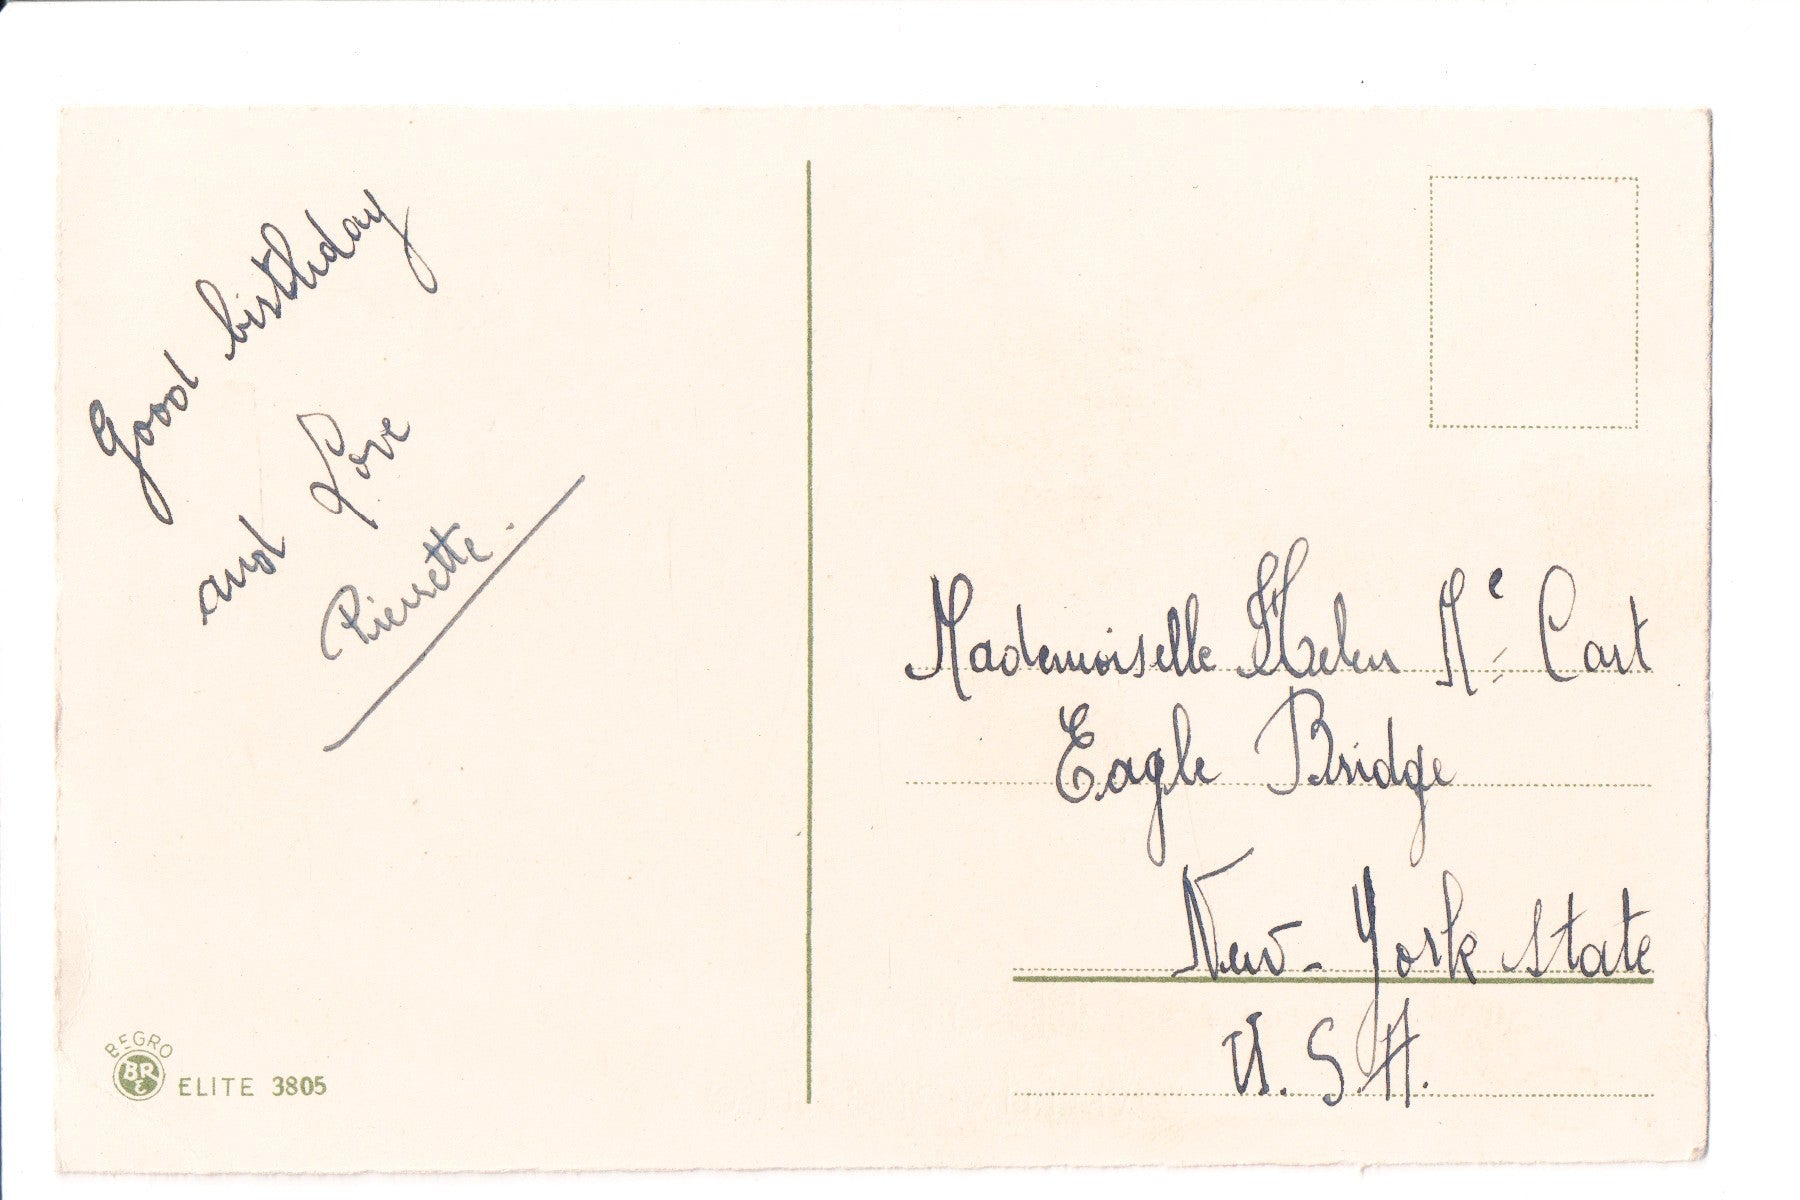 Good birthday
and Love
Pierrette.
Mademoiselle Helen Mc Cart
Eagle Bridge
New-York state
U.S.A.
BEGRO
BR
ELITE 3805